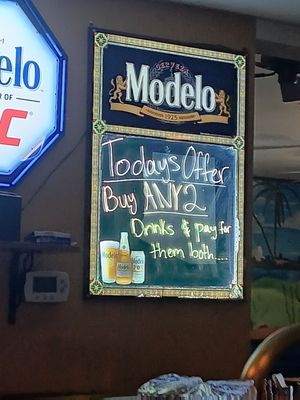 Modelo
CERVEZA
Modelo
1925
Todays Offer
Buy ANY 2
Drinks & pay for
them both....
Modelo
Modelo
Modelo